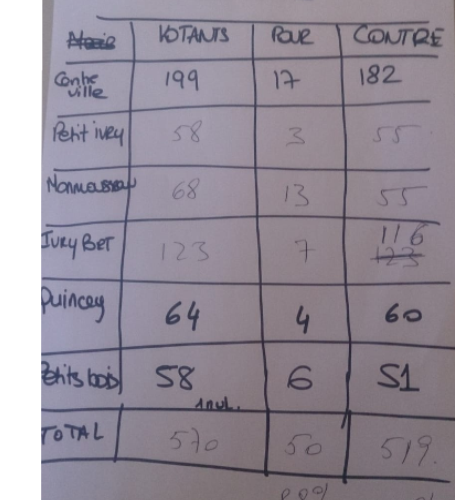 VOTANTS POUR CONTRE
Centre ville 199 17 182
Petit ivry 58 3 55
Monmousseau 68 13 55
IVRY PORT 123 7 116 123
Quincey 64 4 60
Petits bois 58 6 51
1 nul.
TOTAL 570 50 519.